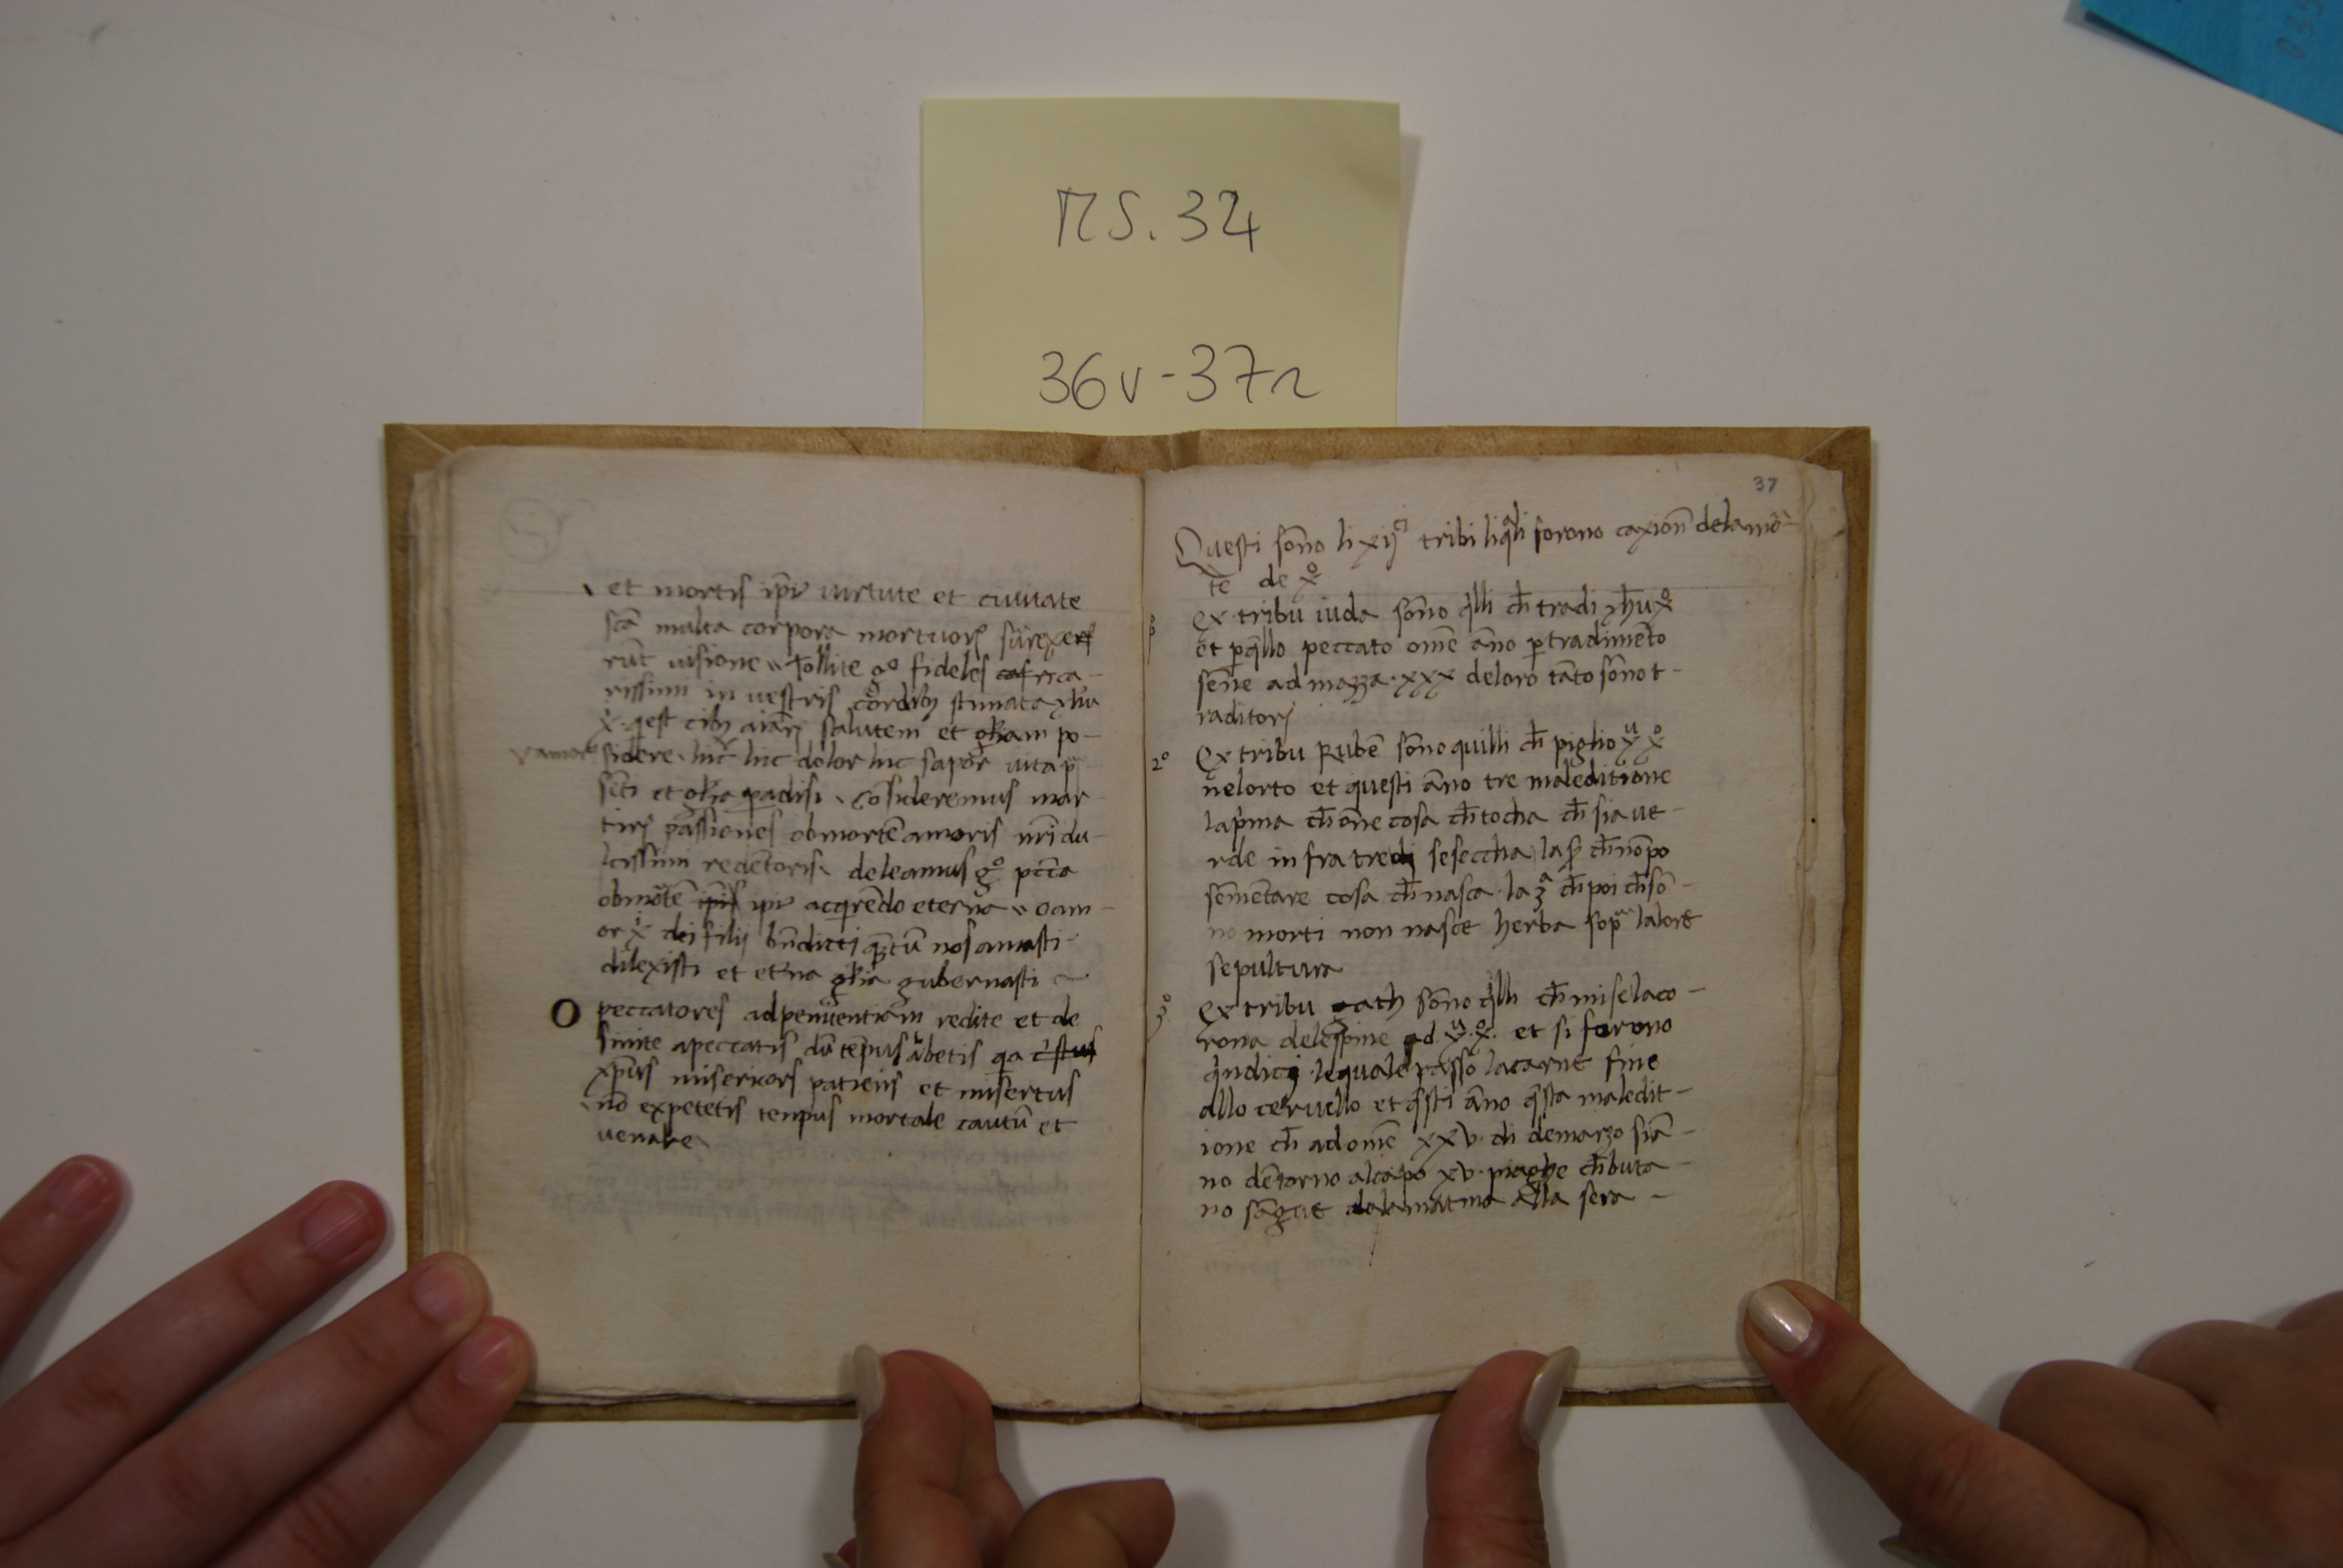 MS. 32
36v-37r
et mortis ip̄iꝰ uirtute et ciuitate
sc̄a malta corpora mortuorꝫ sūrexer
rūt uisione tollite gº fideles
rissimi in uestris cordibꝫ stimata yħu
salutem et gl̄iam po-
sidere hic dolor hic sapor uita
sc̄ti et gl̄ia paradisi cōsideremus mar
tirꝫ passiones obmortē amoris nr̄i du-
lcissimi redētoris deleamus gº pcc̄a
obmōtē ip̄iꝰ acqrēdo eterna oam-
or x̊ dei filij bn̄dicti nos amasti
dilexisti et et̄na gl̄ia gubernasti ~
O peccatores ad penitentiam redite et de
sinite apeccatis dū tēpus abetis qa
xp̄us misericors patiens et misertus
nō expetetis tempus mortale cautū et
uenale
37
Questi sōno li xij tribi liq̄li forono caxion̄ dela mō-
te de x̊
Ex tribu iuda sōno q̄lli ch̄ tradi yħu x̊
et p q̄llo peccato om̄e āno p tradimēto
sen̄e ad mazza · xxx deloro tāto sōno t-
raditorj
2º Ex tribu Rubē sōno quilli ch̄ piglio ẙ x̊
nelorto et questi āno tre maleditione
la p̄ma ch̄ on̄e cosa ch̄ tocha ch̄ sia ue-
rde in fra tredi seseccha la sª ch̄ nō po
semētare cosa ch̄ nasca · la 3ª ch̄ poi ch̄ sō-
no morti non nasce herba sop̄ª lalore
sepultura
3º Ex tribu gath sōno q̄lli ch̄ mise laco-
rona delespine ad ẙ.x̊. et si forono
q̄ndicj lequale passo lacarne fine
allo ceruello et q̄sti āno q̄sta maledit-
ione ch̄ ad om̄e xxv di demarzo siā-
no dētorno alcapo xv piaghe ch̄ buta-
no sāgue dalamatina alla sera -